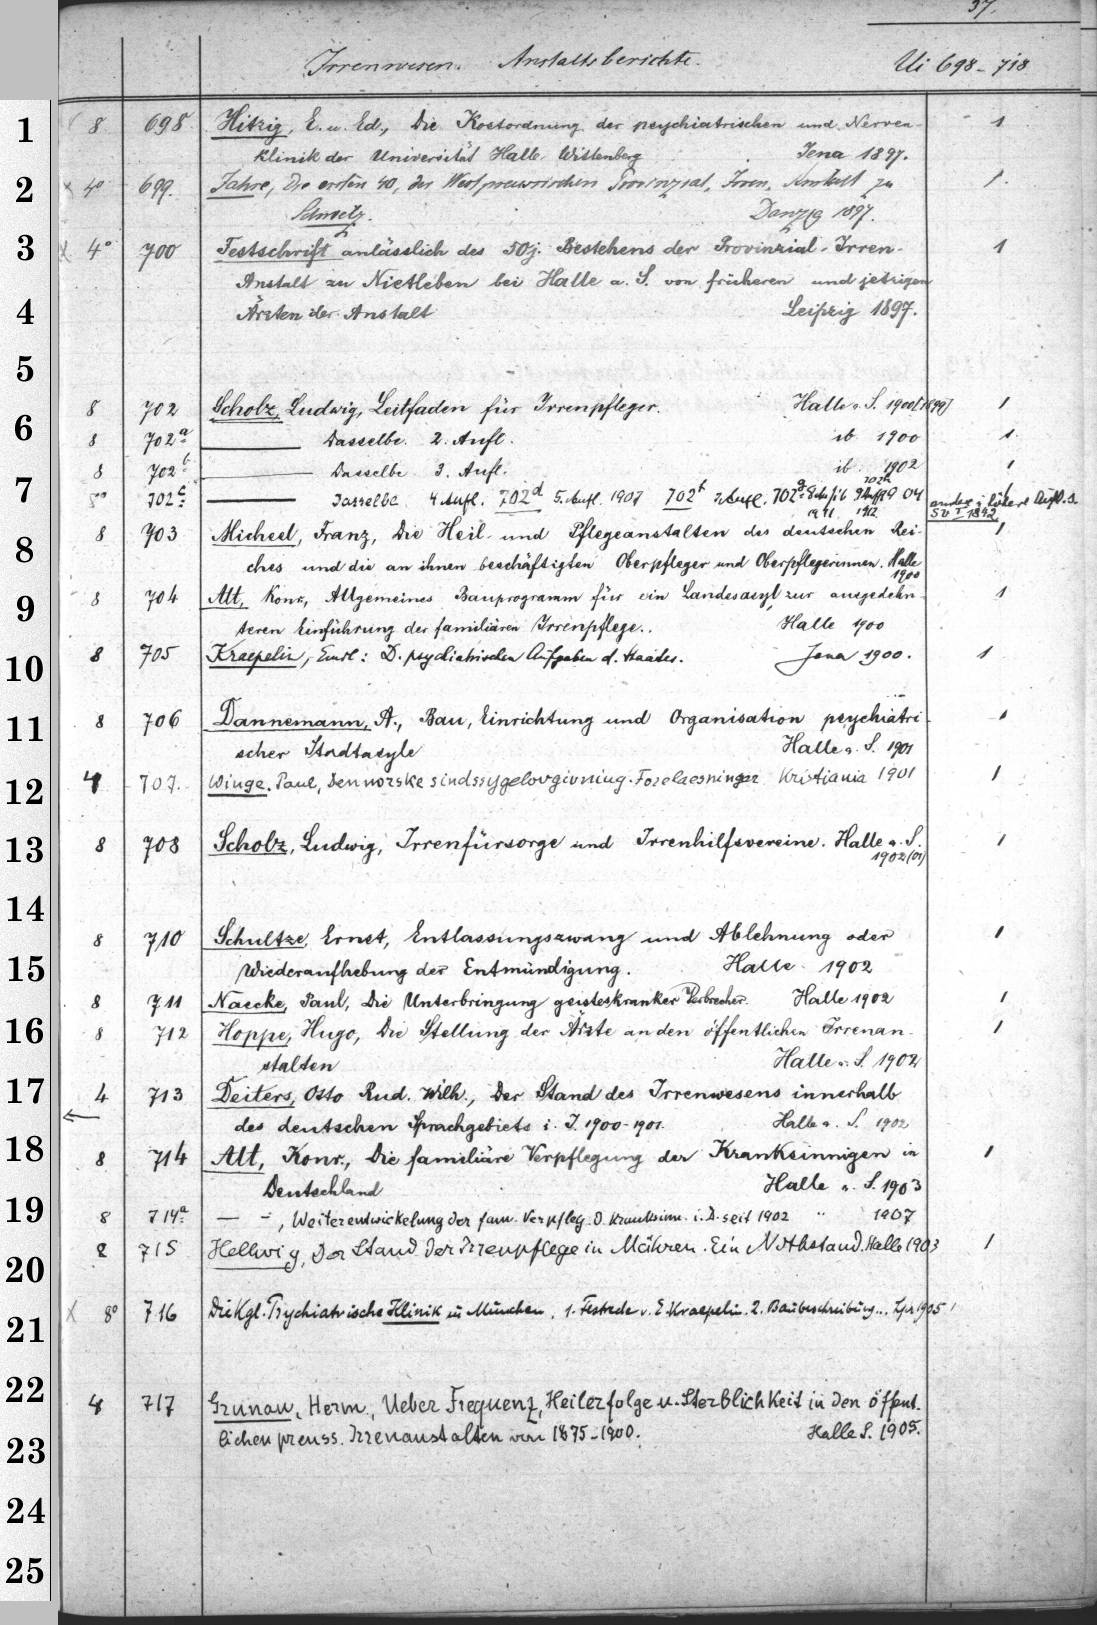 37.
Irrenwesen. Anstaltsberichte. Ui 698 - 718
1
8 698 Hitzig, E. u. Ed., Die Kostordnung der psychiatrischen und Nerven- 1
klinik der Universität Halle Wittenberg Jena 1897.
2
4° 699. Jahre, Die ersten 40, der Westpreussischen Provinzial-Irren-Anstalt zu 1.
Schwetz. Danzig 1897.
3
4° 700 Festschrift anlässlich des 50j. Bestehens der Provinzial-Irren- 1
Anstalt zu Nietleben bei Halle a. S. von früheren und jetzigen
4
Ärzten der Anstalt Leipzig 1897.
5
6
8 702 Scholz, Ludwig, Leitfaden für Irrenpfleger. Halle a. S. 1900 [1899] 1
8 702a Dasselbe. 2. Aufl. ib 1900 1.
8 702b Dasselbe 3. Aufl. ib. 1902 1
7
8° 702c Dasselbe 4 Aufl. 702d 5. Aufl. 1907 702f 7. Aufl. 702g ib 702h 1904
1911 1912
Sv I 1842
8
8 703 Micheel, Franz, Die Heil- und Pflegeanstalten des deutschen Rei- 1
ches und die an ihnen beschäftigten Oberpfleger und Oberpflegerinnen. Halle
1900
9
8 704 Alt, Konr., Allgemeines Bauprogramm für ein Landesasyl zur ausgedehn- 1
teren Einführung der familiären Irrenpflege. Halle 1900
10
8 705 Kraepelin, Emil: D. psychiatrischen Aufgaben d. Staates. Jena 1900. 1
11
8 706 Dannemann, A., Bau, Einrichtung und Organisation psychiatri- 1
scher Stadtasyle Halle a. S. 1901
12
4 707. Winge, Paul, Den norske sindssygelovgivning. Forelaesninger Kristiania 1901 1
13
8 708 Scholz, Ludwig, Irrenfürsorge und Irrenhilfsvereine. Halle a. S. 1
1902 (01)
14
8 710 Schultze, Ernst, Entlassungszwang und Ablehnung oder 1
15
Wiederaufhebung der Entmündigung. Halle 1902
8 711 Naecke, Paul, Die Unterbringung geisteskranker Verbrecher. Halle 1902 1
16
8 712 Hoppe, Hugo, Die Stellung der Ärzte an den öffentlichen Irrenan- 1
stalten Halle a. S. 1902
17
4 713 Deiters, Otto Rud. Wilh., Der Stand des Irrenwesens innerhalb
des deutschen Sprachgebiets i. J. 1900-1901. Halle a. S. 1902
18
8 714 Alt, Konr., Die familiäre Verpflegung der Kranksinnigen in 1
Deutschland Halle a. S. 1903
19
8 714a — - , Weiterentwickelung der fam. Verpfleg. d. Kranksinn. i. D. seit 1902 " 1907
8 715 Hellwig, Der Stand der Irrenpflege in Mähren. Ein Nothstand. Halle 1903 1
20
21
8° 716 Die Kgl. Psychiatrische Klinik in München. 1. Festrede v. E. Kraepelin. 2. Baubeschreibung... Lpz 1905 1
22
4 717 Grunau, Herm., Ueber Frequenz, Heilerfolge u. Sterblichkeit in den öffent-
23
lichen preuss. Irrenanstalten von 1875-1900. Halle S. 1905.
24
25